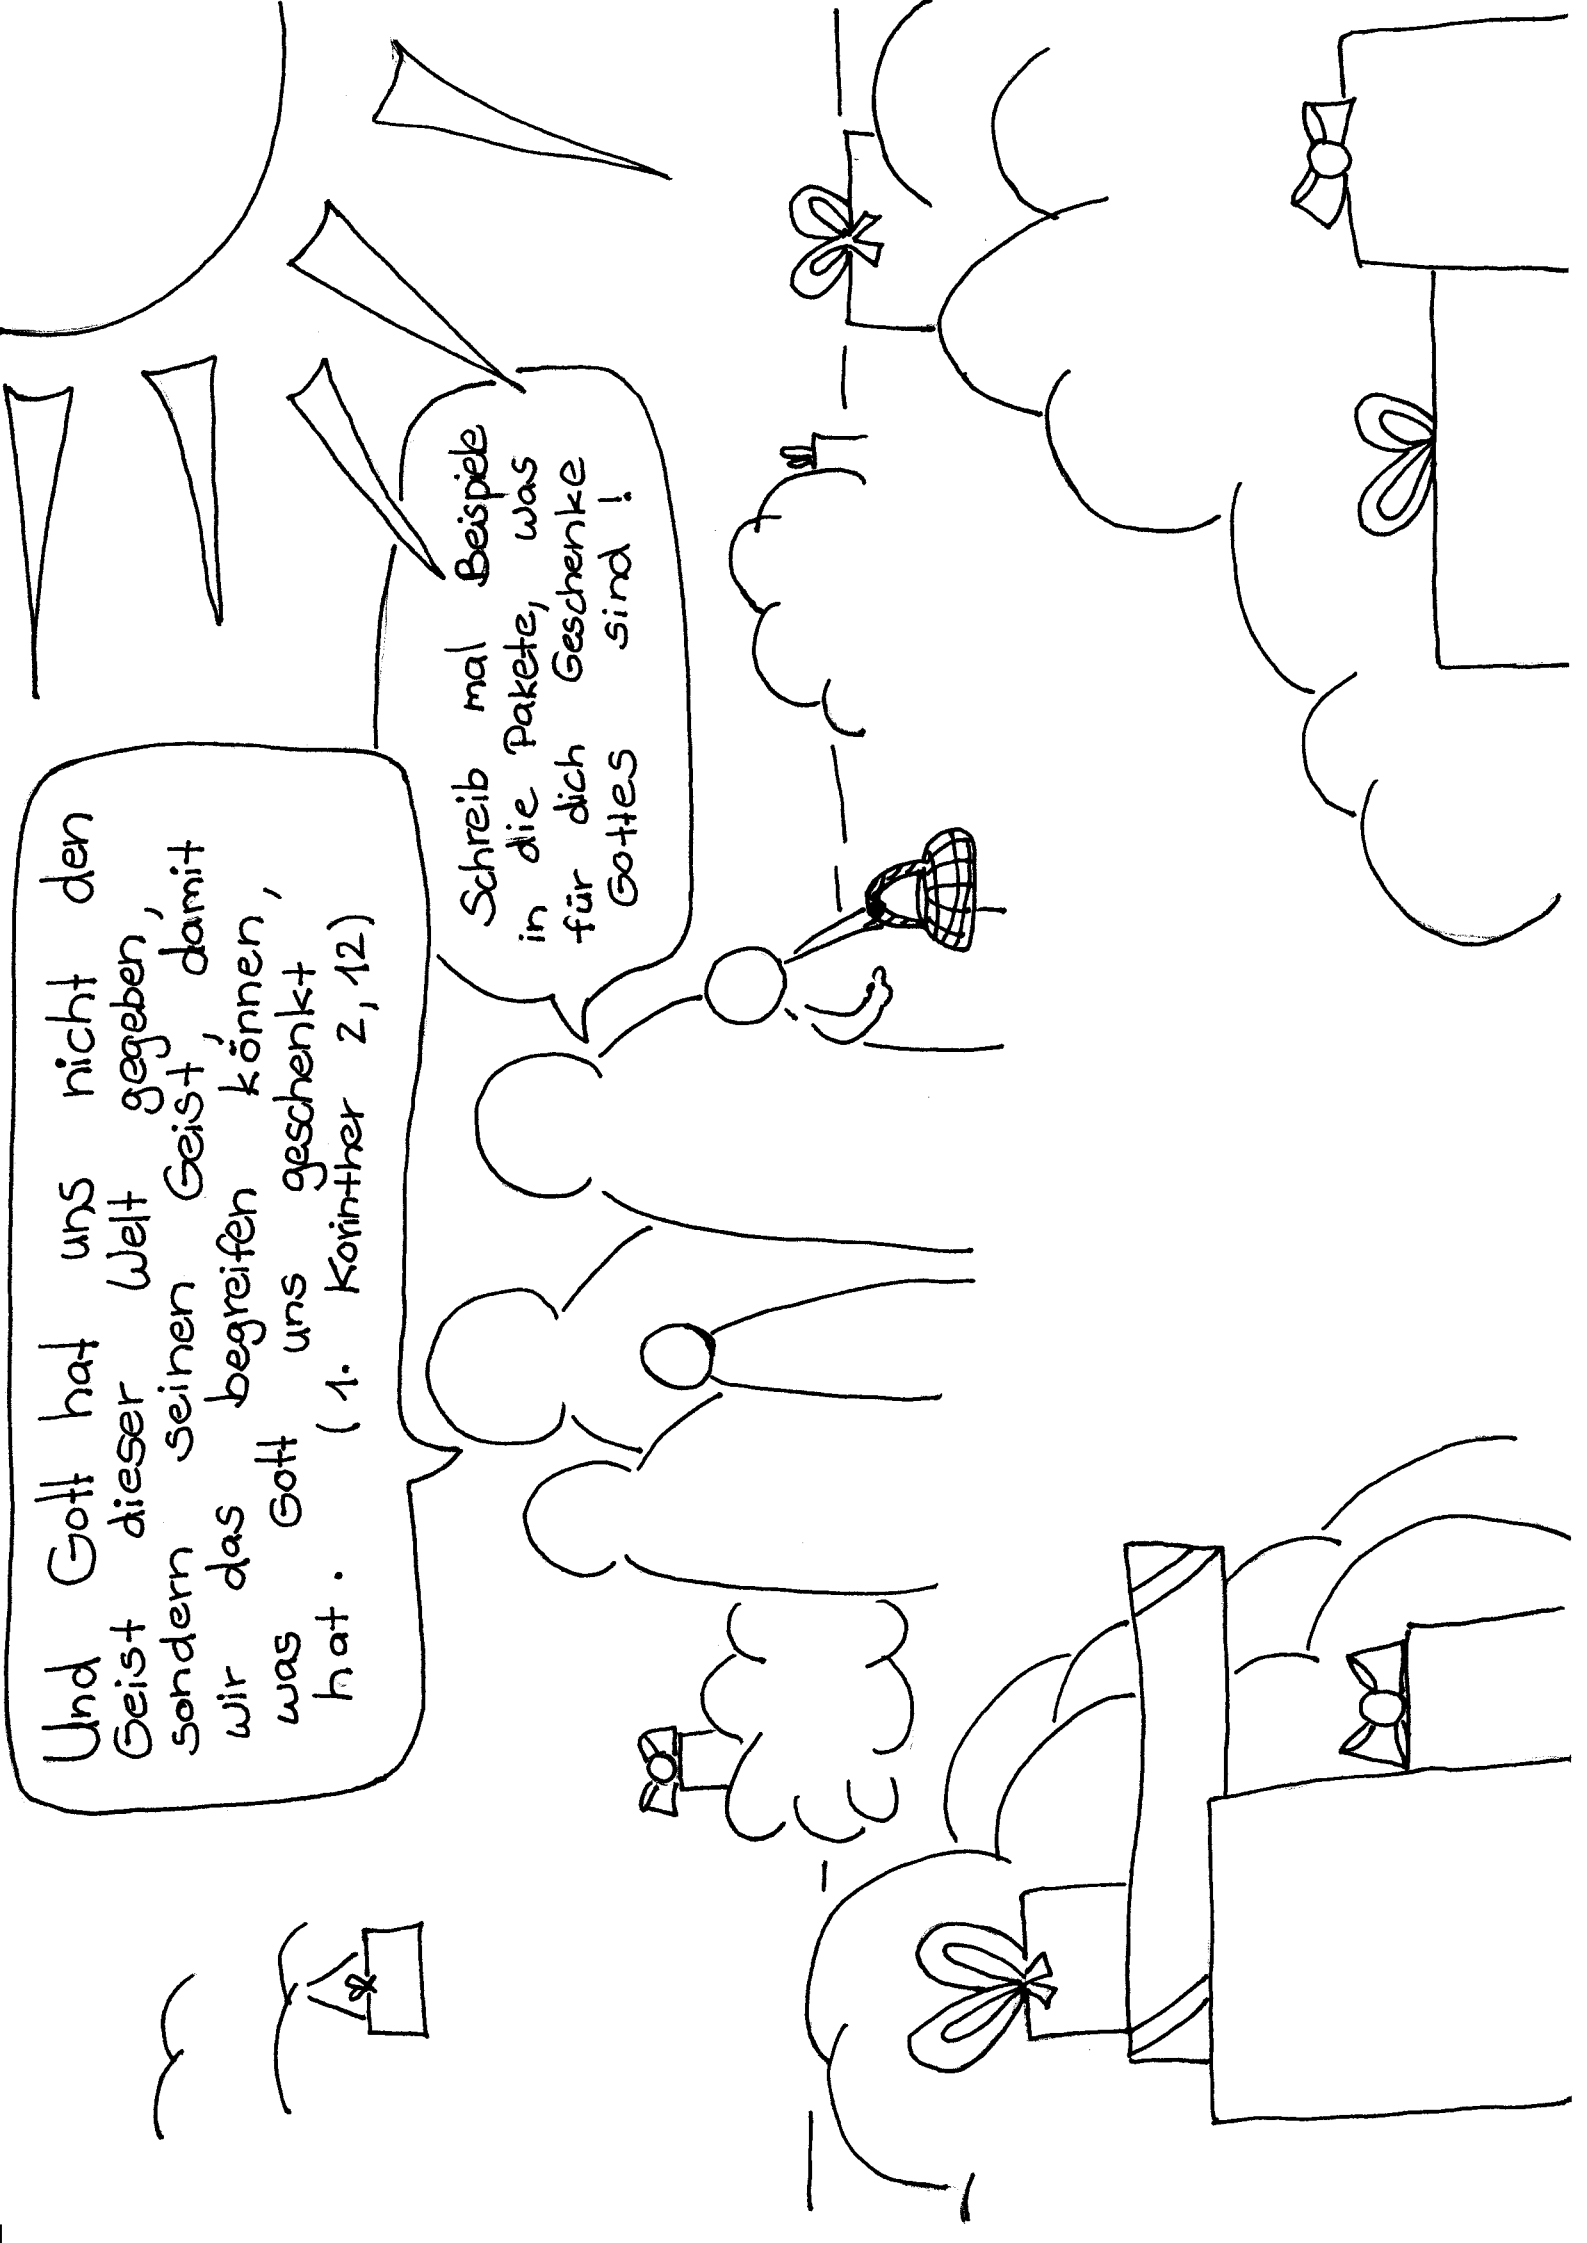 Und Gott hat uns nicht den
Geist dieser Welt gegeben,
sondern seinen Geist, damit
wir das begreifen können,
was Gott uns geschenkt
hat. (1. Korinther 2,12)
Schreib mal Beispiele
in die Pakete, was
für dich Geschenke
Gottes sind!